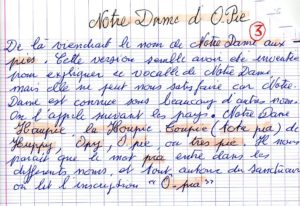 Notre Dame d'O. Pie
3
De là viendrait le nom de Notre Dame aux
pies. Cette version semble avoir été inventée
pour expliquer ce vocable de Notre Dame
mais elle ne peut nous satisfaire car Notre
Dame est connue sous beaucoup d'autres noms.
On l'appelle suivant les pays. Notre Dame
Houpie la Houpie Toupie (tota pia) de
Huppy, Opy, O. pie, ou très pie. Il nous
paraît que le mot pia entre dans les
différents noms, et tout autour du sanctuaire
on lit l'inscription "O. pia"